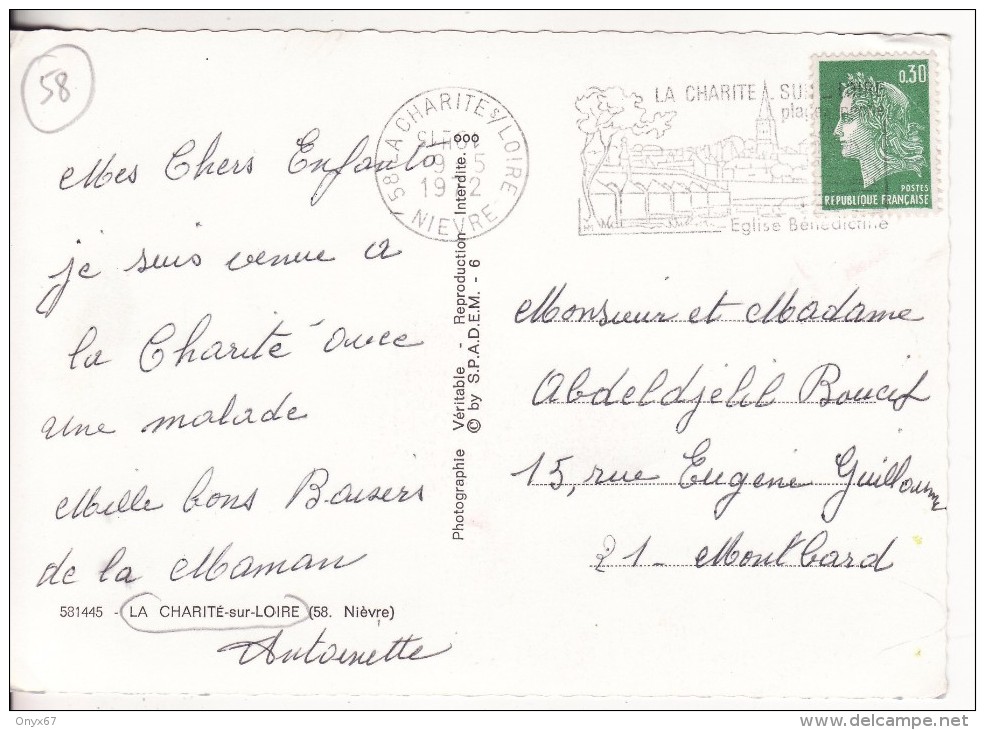 58
58 LA CHARITE S/LOIRE
1972
NIEVRE
LA CHARITE SUR LOIRE
Eglise Bénédictine
0,30
POSTES
REPUBLIQUE FRANÇAISE
Mes Chers Enfants
je suis venue a
la Charité avec
une malade
Mille bons Baisers
de la Maman
581445 - LA CHARITÉ-sur-LOIRE (58. Nièvre)
Antoinette
Photographie Véritable - Reproduction Interdite.
© by S.P.A.D.E.M. - 6
Monsieur et Madame
Abdeldjelil Boucif
15, rue Eugène Guillaume
21 - Montbard
Onyx67
delcampe.net